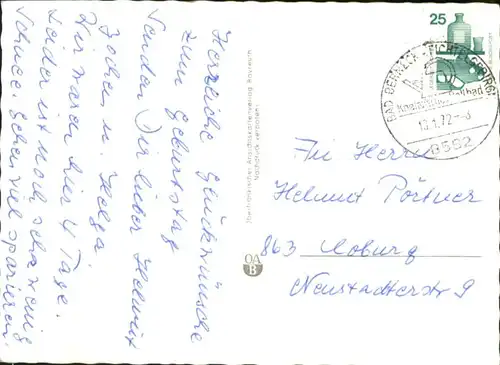 Herzliche Glückwünsche
zum Geburtstag
senden Dir lieber Helmut
Jochen u. Helga
Wir waren hier 4 Tage.
Leider ist noch sehr wenig
Schnee. Gehen viel spazieren.
Oberfränkischer Ansichtskartenverlag Bayreuth
Nachdruck verboten!
OA
B
25
BAD BERNECK · FICHTELGEBIRGE
13.1.72-6
8582
An Herrn
Helmut Pörtner
863 Coburg
Neustadterstr 9